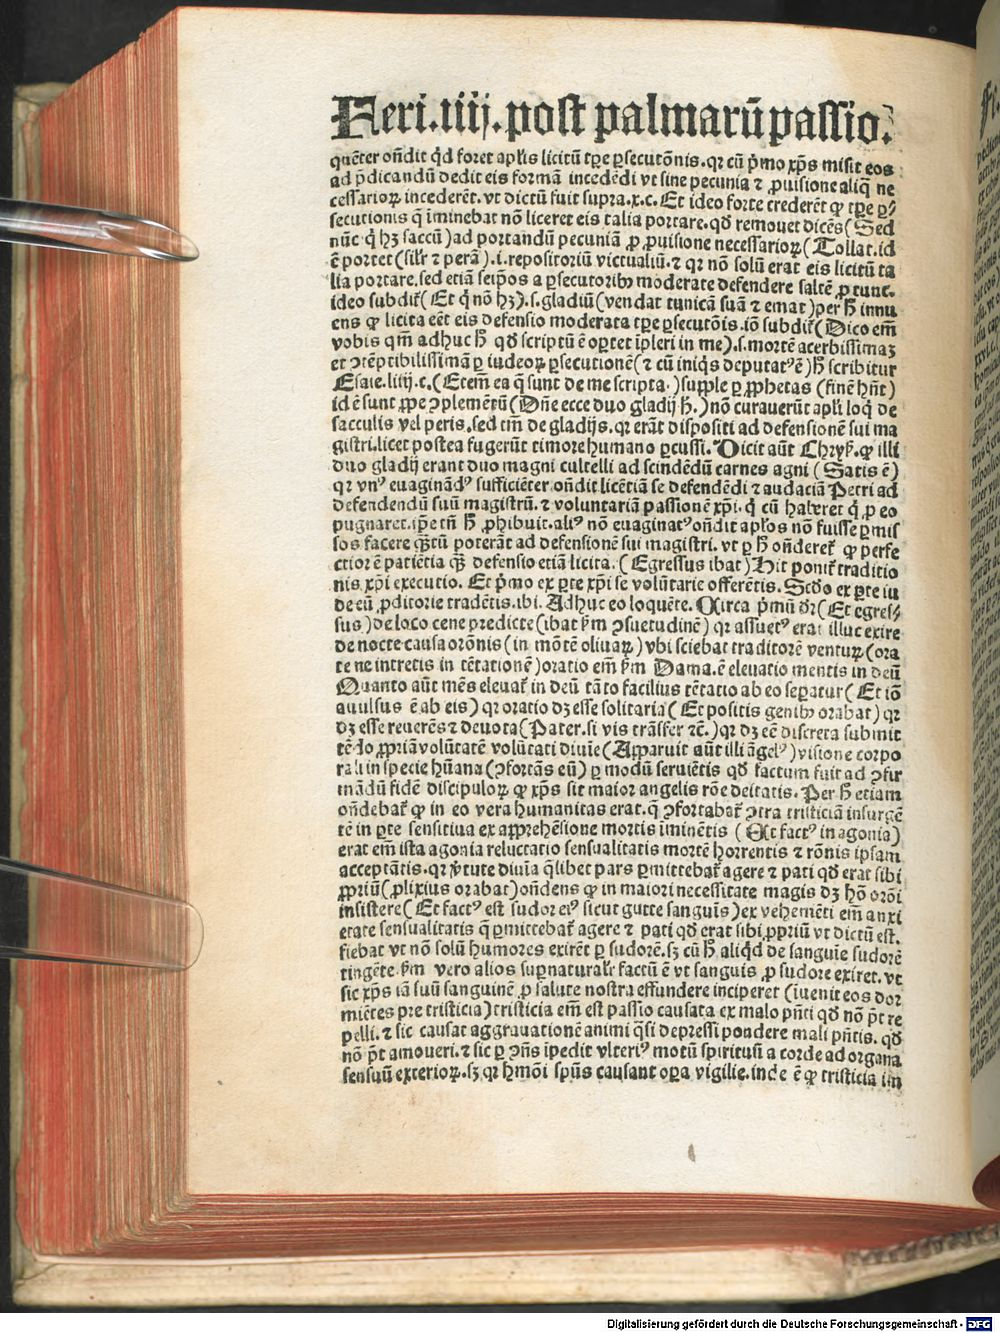 Feri.iiij.post palmarū passio.
quēter oñdit qd foret aplis licitū tpe psecutōnis.qr cū pmo xps misit eos
ad pdicandū dedit eis formā incedēdi vt sine pecunia ⁊ puisione aliq ne
cessarioꝝ incederēt.vt dictū fuit supra.x.c.Et ideo forte crederēt ꝙ tpe p⸗
secutionis q īminebat nō liceret eis talia portare.qd remouet dicēs (Sed
nūc q hꝫ saccū) ad portandū pecuniā ꝓ puisione necessarioꝝ (Tollat.id
ē portet (silr ⁊ perā).i.repositoriū victualiū.⁊ qr nō solū erat eis licitū ta
lia portare.sed etiā seipos a psecutoribꝰ moderate defendere saltē ꝓ tunc.
ideo subdit (Et q nō hꝫ).s.gladiū (vendat tunicā suā ⁊ emat) per h̄ innu
ens ꝙ licita eēt eis defensio moderata tpe psecutōis.iō subdit (Dico em̄
vobis qm̄ adhuc h̄ qd scriptū ē oportet īpleri in me).s.mortē acerbissimaꝫ
et ↄtēptibilissimā p iudeoꝝ psecutionē (⁊ cū iniqs deputatꝰ ē) h̄ scribitur
Esaie.liiij.c.(Etem̄ ea q sunt de me scripta.) supple p prophetas (finē hn̄t)
id ē sunt prope ↄplemētū (Dn̄e ecce duo gladij h̄.) nō curauerūt apli loq de
sacculis vel peris.sed tm̄ de gladijs.qr erāt dispositi ad defensionē sui ma
gistri.licet postea fugerūt timore humano pcussi.Dicit aūt Chrys.ꝙ illi
duo gladij erant duo magni cultelli ad scindēdū carnes agni (Satis ē)
qr vnꝰ euaginādꝰ sufficiēter oñdit licētiā se defendēdi ⁊ audaciā Petri ad
defendendū suū magistrū.⁊ voluntariā passionē xpi.q cū haberet q ꝓ eo
pugnaret.ipe tn̄ h̄ prohibuit.aliꝰ nō euaginatꝰ oñdit aplos nō fuisse pmis
sos facere qtū poterāt ad defensionē sui magistri.vt p h̄ oñderet ꝙ perfe
ctior ē patiētia q defensio etiā licita.(Egressus ibat) Hic ponit traditio
nis xpi executio.Et pmo ex pte xpi se volūtarie offerētis.Scdo ex pte iu
de eū proditorie tradētis.ibi.Adhuc eo loquēte.Circa pmū dr (Et egres⸗
sus) de loco cene predicte (ibat sm ↄsuetudinē) qr assuetꝰ erat illuc exire
de nocte causa orōnis (in mōte oliuaꝝ) vbi sciebat traditorē venturꝝ (ora
te ne intretis in tētationē) oratio em̄ sm Dama.ē eleuatio mentis in deū
Quanto aūt mēs eleuat in deū tāto facilius tētatio ab eo separatur (Et iō
auulsus ē ab eis) qr oratio dꝫ esse solitaria (Et positis genibꝰ orabat) qr
dꝫ esse reuerēs ⁊ deuota (Pater.si vis trāsfer ⁊c̄.) qr dꝫ eē discreta submit
tēdo propriā volūtatē volūtati diuīe (Apparuit aūt illi āgelꝰ) visione corpo
rali in specie hūana (ↄfortās eū) p modū seruiētis qd factum fuit ad ↄfir
mādū fidē discipuloꝝ ꝙ xps sit maior angelis rōe deitatis.Per h̄ etiam
oñdebat ꝙ in eo vera humanitas erat.q ↄfortabat ↄtra tristiciā insurgē
tē in pte sensitiua ex apprehēsione mortis īminētis (Et factꝰ in agonia)
erat em̄ ista agonia reluctatio sensualitatis mortē horrentis ⁊ rōnis ipsam
acceptātis.qr vtute diuīa qlibet pars pmittebat agere ⁊ pati qd erat sibi
propriū (prolixius orabat) oñdens ꝙ in maiori necessitate magis dꝫ hō orōi
insistere (Et factꝰ est sudor eiꝰ sicut gutte sanguīs) ex vehemēti em̄ anxi
etate sensualitatis q pmittebat agere ⁊ pati qd erat sibi propriū vt dictū est.
fiebat vt nō solū humores exirēt p sudorē.sꝫ cū h̄ aliqd de sanguīe sudorē
tingēte.sm vero alios supnaturalr factū ē vt sanguis ꝓ sudore exiret.vt
sic xps iā suū sanguinē ꝓ salute nostra effundere inciperet (iuenit eos dor
miētes pre tristicia) tristicia em̄ est passio causata ex malo pn̄ti qd nō pt re
pelli.⁊ sic causat aggrauationē animi qsi depressi pondere mali pn̄tis.qd
nō pt amoueri.⁊ sic p ↄn̄s īpedit vlteriꝰ motū spirituū a corde ad organa
sensuū exterioꝝ.sꝫ qr hmōi spūs causant opa vigilie.inde ē ꝙ tristicia im
Digitalisierung gefördert durch die Deutsche Forschungsgemeinschaft - DFG